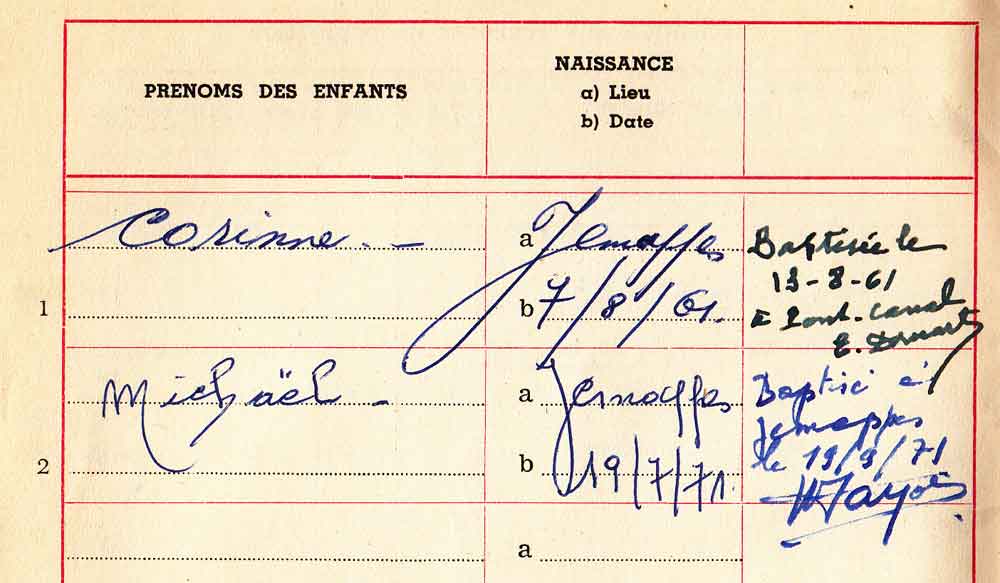 PRENOMS DES ENFANTS
NAISSANCE
a) Lieu
b) Date
Corinne. -
a Jemappes
Baptisée le
13-8-61
1
b 7/8/61.
Pont-Canal
E.
Michaël -
a Jemappes
Baptisé à
Jemappes
2
b 19/7/71.
le 19/9/71
a